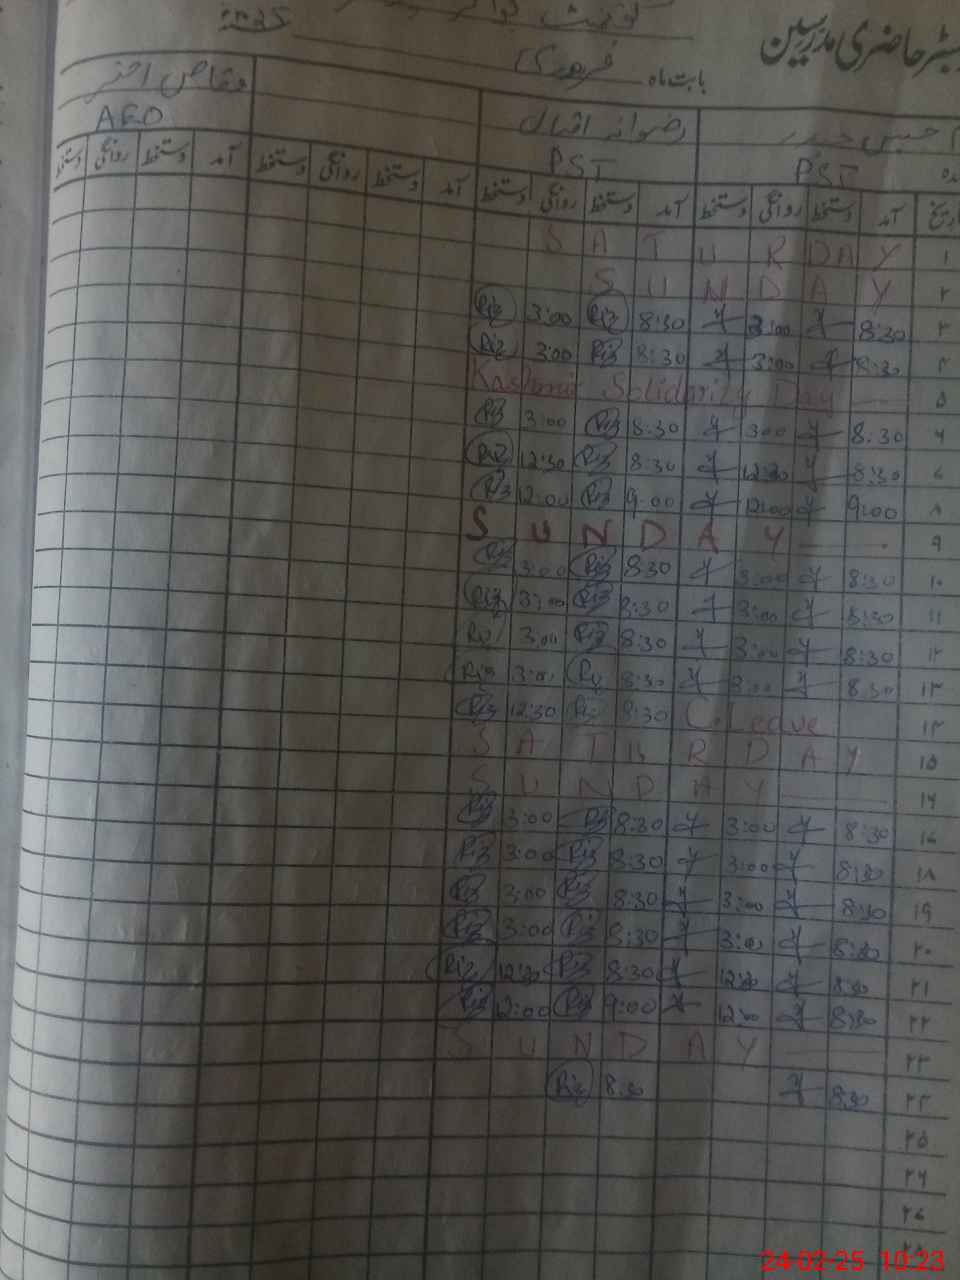 حاضری مدرسین
گورنمنٹ
بابت ماہ فروری
حسن حیدر رضوانہ اقبال وقاص اختر
PST PST AEO
تاریخ آمد دستخط روانگی دستخط آمد دستخط روانگی دستخط آمد دستخط روانگی دستخط آمد دستخط روانگی دستخط
۱ SATURDAY
۲ SUNDAY
۳ 8:30 3:00 8:30 Riz 3:00 Riz
۴ 8:30 3:00 8:30 Riz 3:00 Riz
۵ Kashmir Solidarity Day
۶ 8:30 3:00 8:30 Riz 3:00 Riz
۷ 8:30 12:30 8:30 Riz 12:30 Riz
۸ 9:00 12:00 9:00 Riz 12:00 Riz
۹ SUNDAY
۱۰ 8:30 3:00 8:30 Riz 3:00 Riz
۱۱ 8:30 3:00 8:30 Riz 3:00 Riz
۱۲ 8:30 3:00 8:30 Riz 3:00 Riz
۱۳ 8:30 3:00 8:30 Riz 3:00 Riz
۱۴ C.Leave 8:30 Riz 12:30 Riz
۱۵ SATURDAY
۱۶ SUNDAY
۱۷ 8:30 3:00 8:30 Riz 3:00 Riz
۱۸ 8:30 3:00 8:30 Riz 3:00 Riz
۱۹ 8:30 3:00 8:30 Riz 3:00 Riz
۲۰ 8:30 3:00 8:30 Riz 3:00 Riz
۲۱ 8:30 12:30 8:30 Riz 12:30 Riz
۲۲ 8:30 12:00 9:00 Riz 12:00 Riz
۲۳ SUNDAY
۲۴ 8:30 8:30 Riz
۲۵
۲۶
۲۷
۲۸
24-02-25 10:23